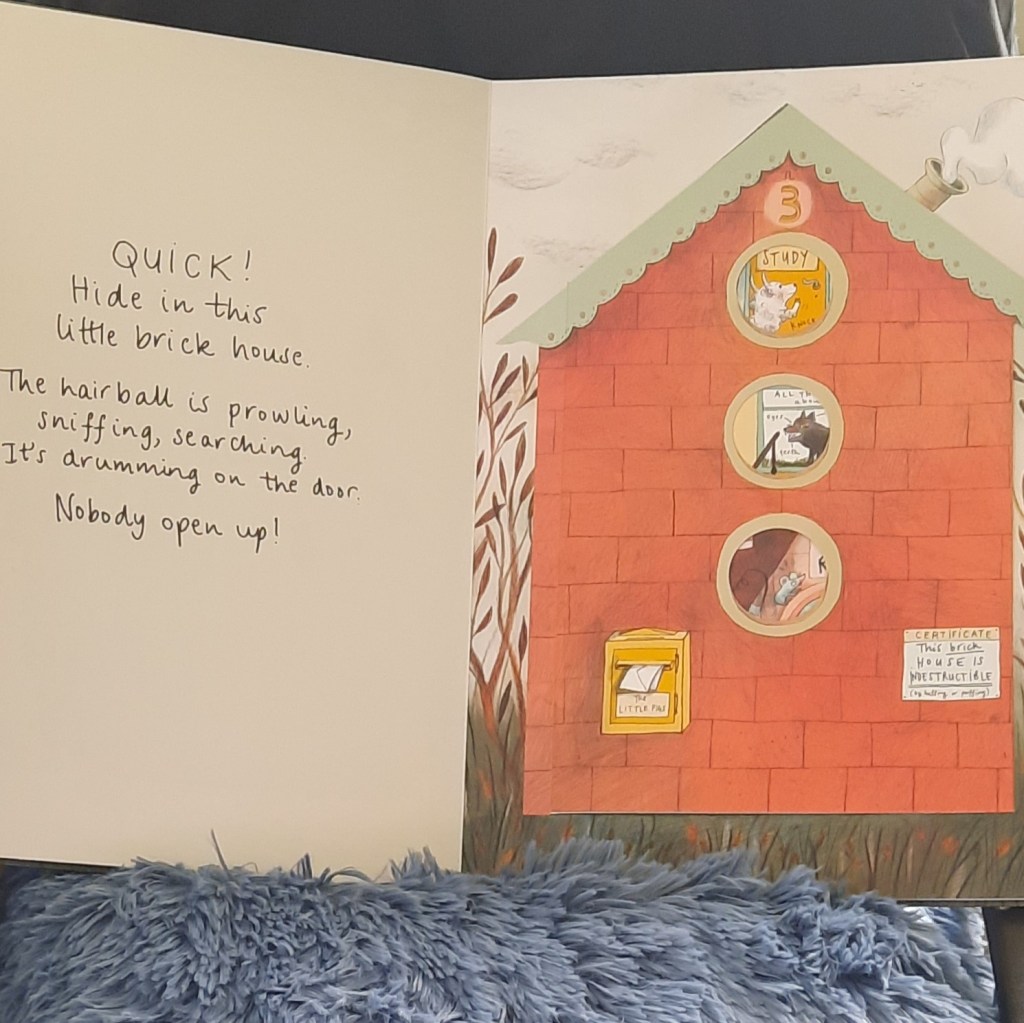 QUICK!
Hide in this
little brick house.
The hairball is prowling,
sniffing, searching.
It's drumming on the door.
Nobody open up!
3
STUDY
KNOCK
ALL TH
abou
eyes
teeth
The
LITTLE PIGS
CERTIFICATE
This brick
HOUSE IS
INDESTRUCTIBLE
(by huffing or puffing)